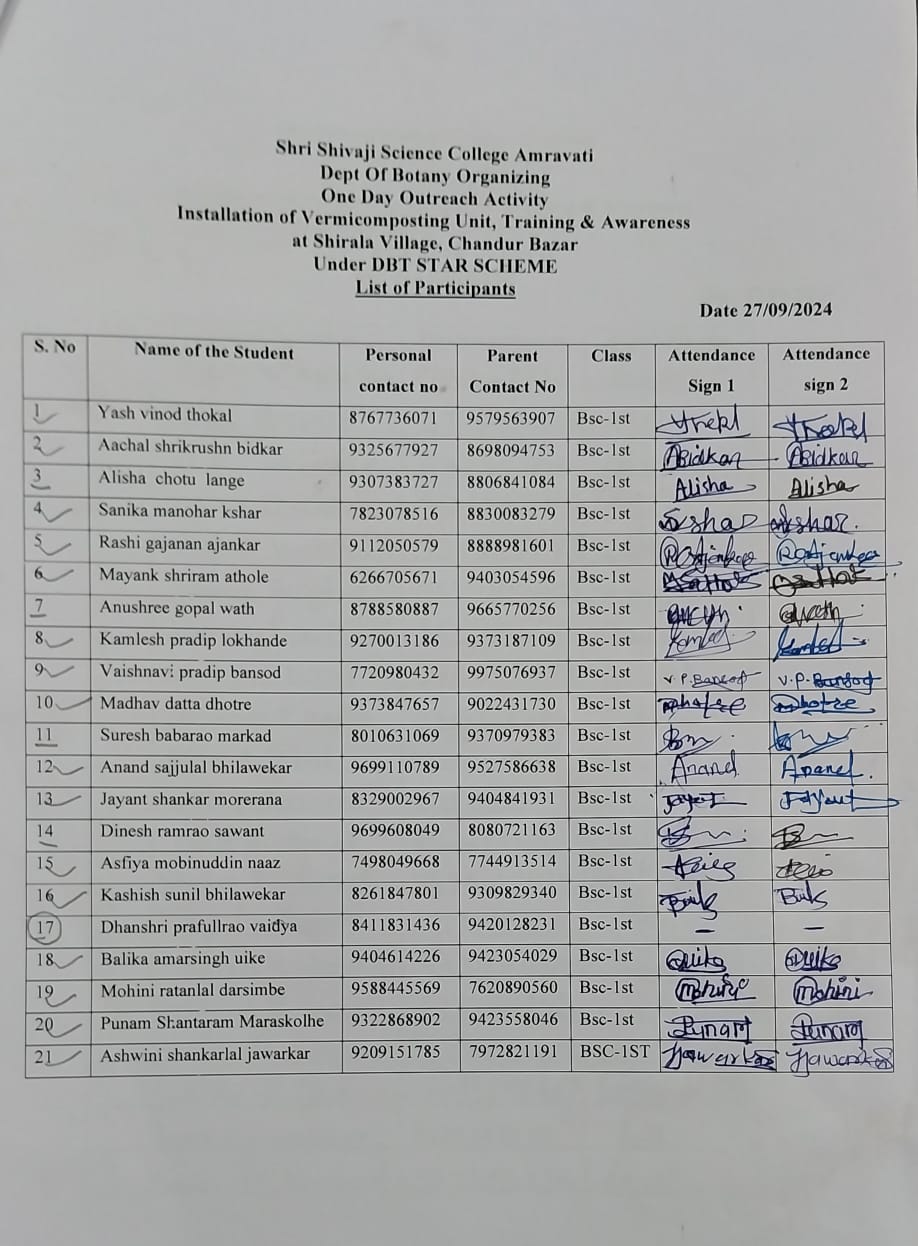 Shri Shivaji Science College Amravati
Dept Of Botany Organizing
One Day Outreach Activity
Installation of Vermicomposting Unit, Training & Awareness
at Shirala Village, Chandur Bazar
Under DBT STAR SCHEME
List of Participants
Date 27/09/2024
S. No Name of the Student Personal contact no Parent Contact No Class Attendance Sign 1 Attendance sign 2
1 Yash vinod thokal 8767736071 9579563907 Bsc-1st
2 Aachal shrikrushn bidkar 9325677927 8698094753 Bsc-1st ABidkar ABidkar
3 Alisha chotu lange 9307383727 8806841084 Bsc-1st Alisha Alisha
4 Sanika manohar kshar 7823078516 8830083279 Bsc-1st
5 Rashi gajanan ajankar 9112050579 8888981601 Bsc-1st
6 Mayank shriram athole 6266705671 9403054596 Bsc-1st
7 Anushree gopal wath 8788580887 9665770256 Bsc-1st
8 Kamlesh pradip lokhande 9270013186 9373187109 Bsc-1st
9 Vaishnavi pradip bansod 7720980432 9975076937 Bsc-1st V.P.Bansod V.P.Bansod
10 Madhav datta dhotre 9373847657 9022431730 Bsc-1st
11 Suresh babarao markad 8010631069 9370979383 Bsc-1st
12 Anand sajjulal bhilawekar 9699110789 9527586638 Bsc-1st Anand Anand.
13 Jayant shankar morerana 8329002967 9404841931 Bsc-1st
14 Dinesh ramrao sawant 9699608049 8080721163 Bsc-1st
15 Asfiya mobinuddin naaz 7498049668 7744913514 Bsc-1st
16 Kashish sunil bhilawekar 8261847801 9309829340 Bsc-1st
17 Dhanshri prafullrao vaidya 8411831436 9420128231 Bsc-1st – –
18 Balika amarsingh uike 9404614226 9423054029 Bsc-1st
19 Mohini ratanlal darsimbe 9588445569 7620890560 Bsc-1st Mohini Mohini
20 Punam Shantaram Maraskolhe 9322868902 9423558046 Bsc-1st
21 Ashwini shankarlal jawarkar 9209151785 7972821191 BSC-1ST